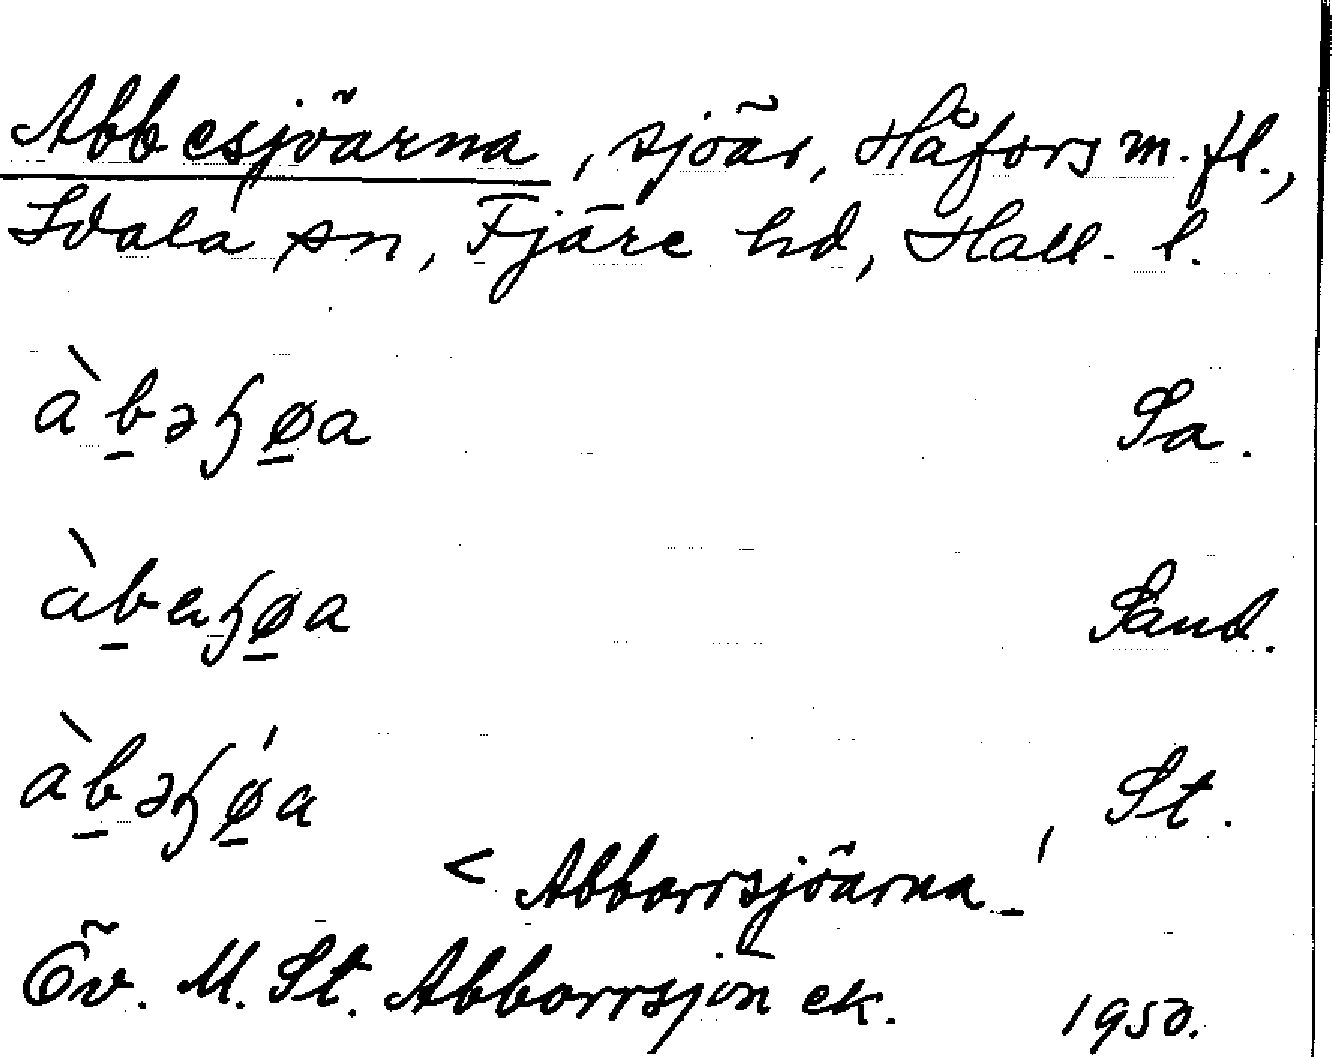 Abbesjöarna, sjöar, Håfors m. fl.,
Idala sn, Fjäre hd, Hall. l.
àbəɧøa Sa.
àbaɧøa Sand.
àbəɧǿa St.
< Abborrsjöarna
Öv. M. St. Abborrsjön ek. 1950.